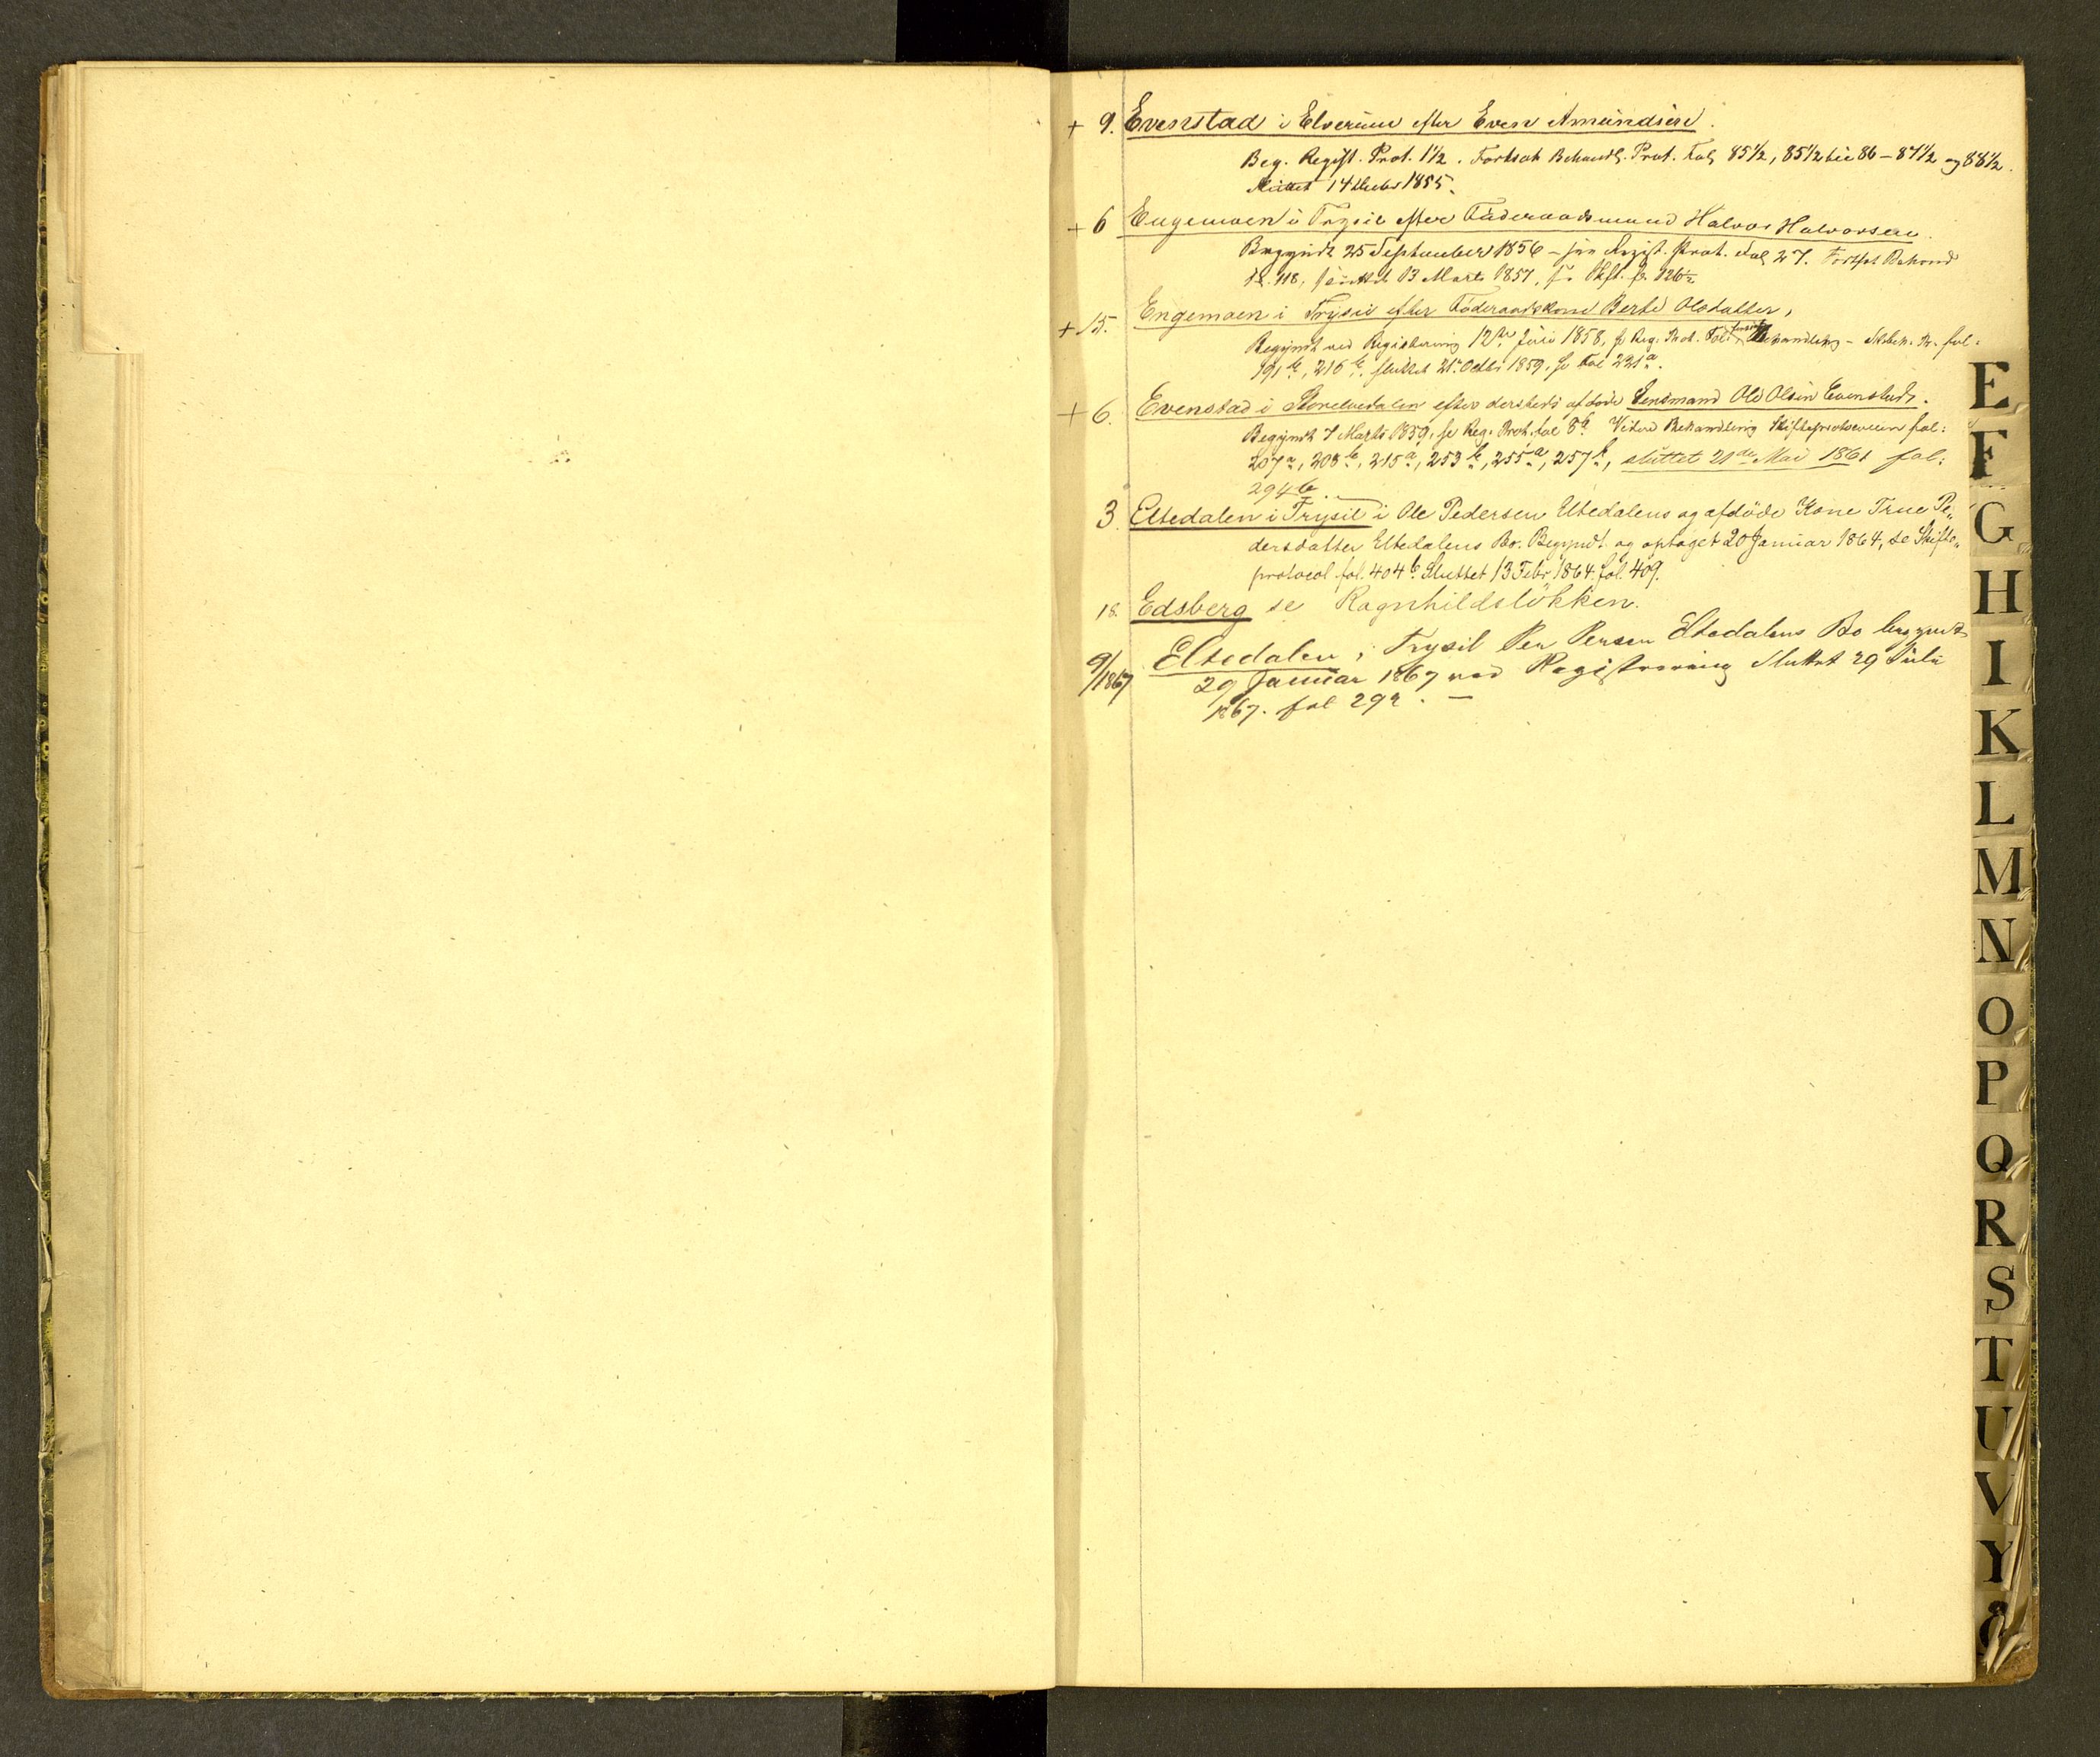 + 9. Evenstad i Elverum efter Even Amundsen.
Beg. Regist. Prot. 1½. Fortsat Behandl. Prot. Fol. 85½, 85½ 86 – 87½ og 88½.
Sluttet 14 1855.
+ 6 Engemoen i Trysil efter Föderaadsmand Halvor Halvorsen.
Begyndt 25 September 1856 – Regist. Prot. Fol 27. Fortsat Behand
118, sluttet 13 Marts 1857, 126½
+ 15. Engemoen i Trysil efter Föderaadskone Berte Olsdatter,
Begyndt ved Registrering 12te Juli 1858, se Reg. Prot. Fol. Behandling – fol:
191b, 216b. sluttet 21 Octbr 1859, se Fol 221a.
+ 6. Evenstad i Storelvedalen efter dersteds afdøde Lensmand Ole Olsen Evenstad.
Begyndt 7 Marts 1859, se Reg. Prot. fol 8b. Videre Behandling Skifteprotocollen fol:
207a, 208b, 215a, 253b, 255a, 257b, sluttet 21de Mai 1861 fol:
294b.
3. Eltedalen i Trysil i Ole Pedersen Eltedalens og afdöde Kone True Pe„
dersdatter Eltedalens Bo. Begyndt og optaget 20 Januar 1864, se Skifte„
protocol fol. 404b Sluttet 13 Febr 1864. fol. 409.
18. Edsberg se Ragnhildslökken.
9/1867 Eltedalen, Trysil Per Persen Eltedalens Bo begyndt
29 Januar 1867 ved Registrering Sluttet 29 Juli
1867. fol 292. —
E
F
G
H
I
K
L
M
N
O
P
Q
R
S
T
U
V
Y